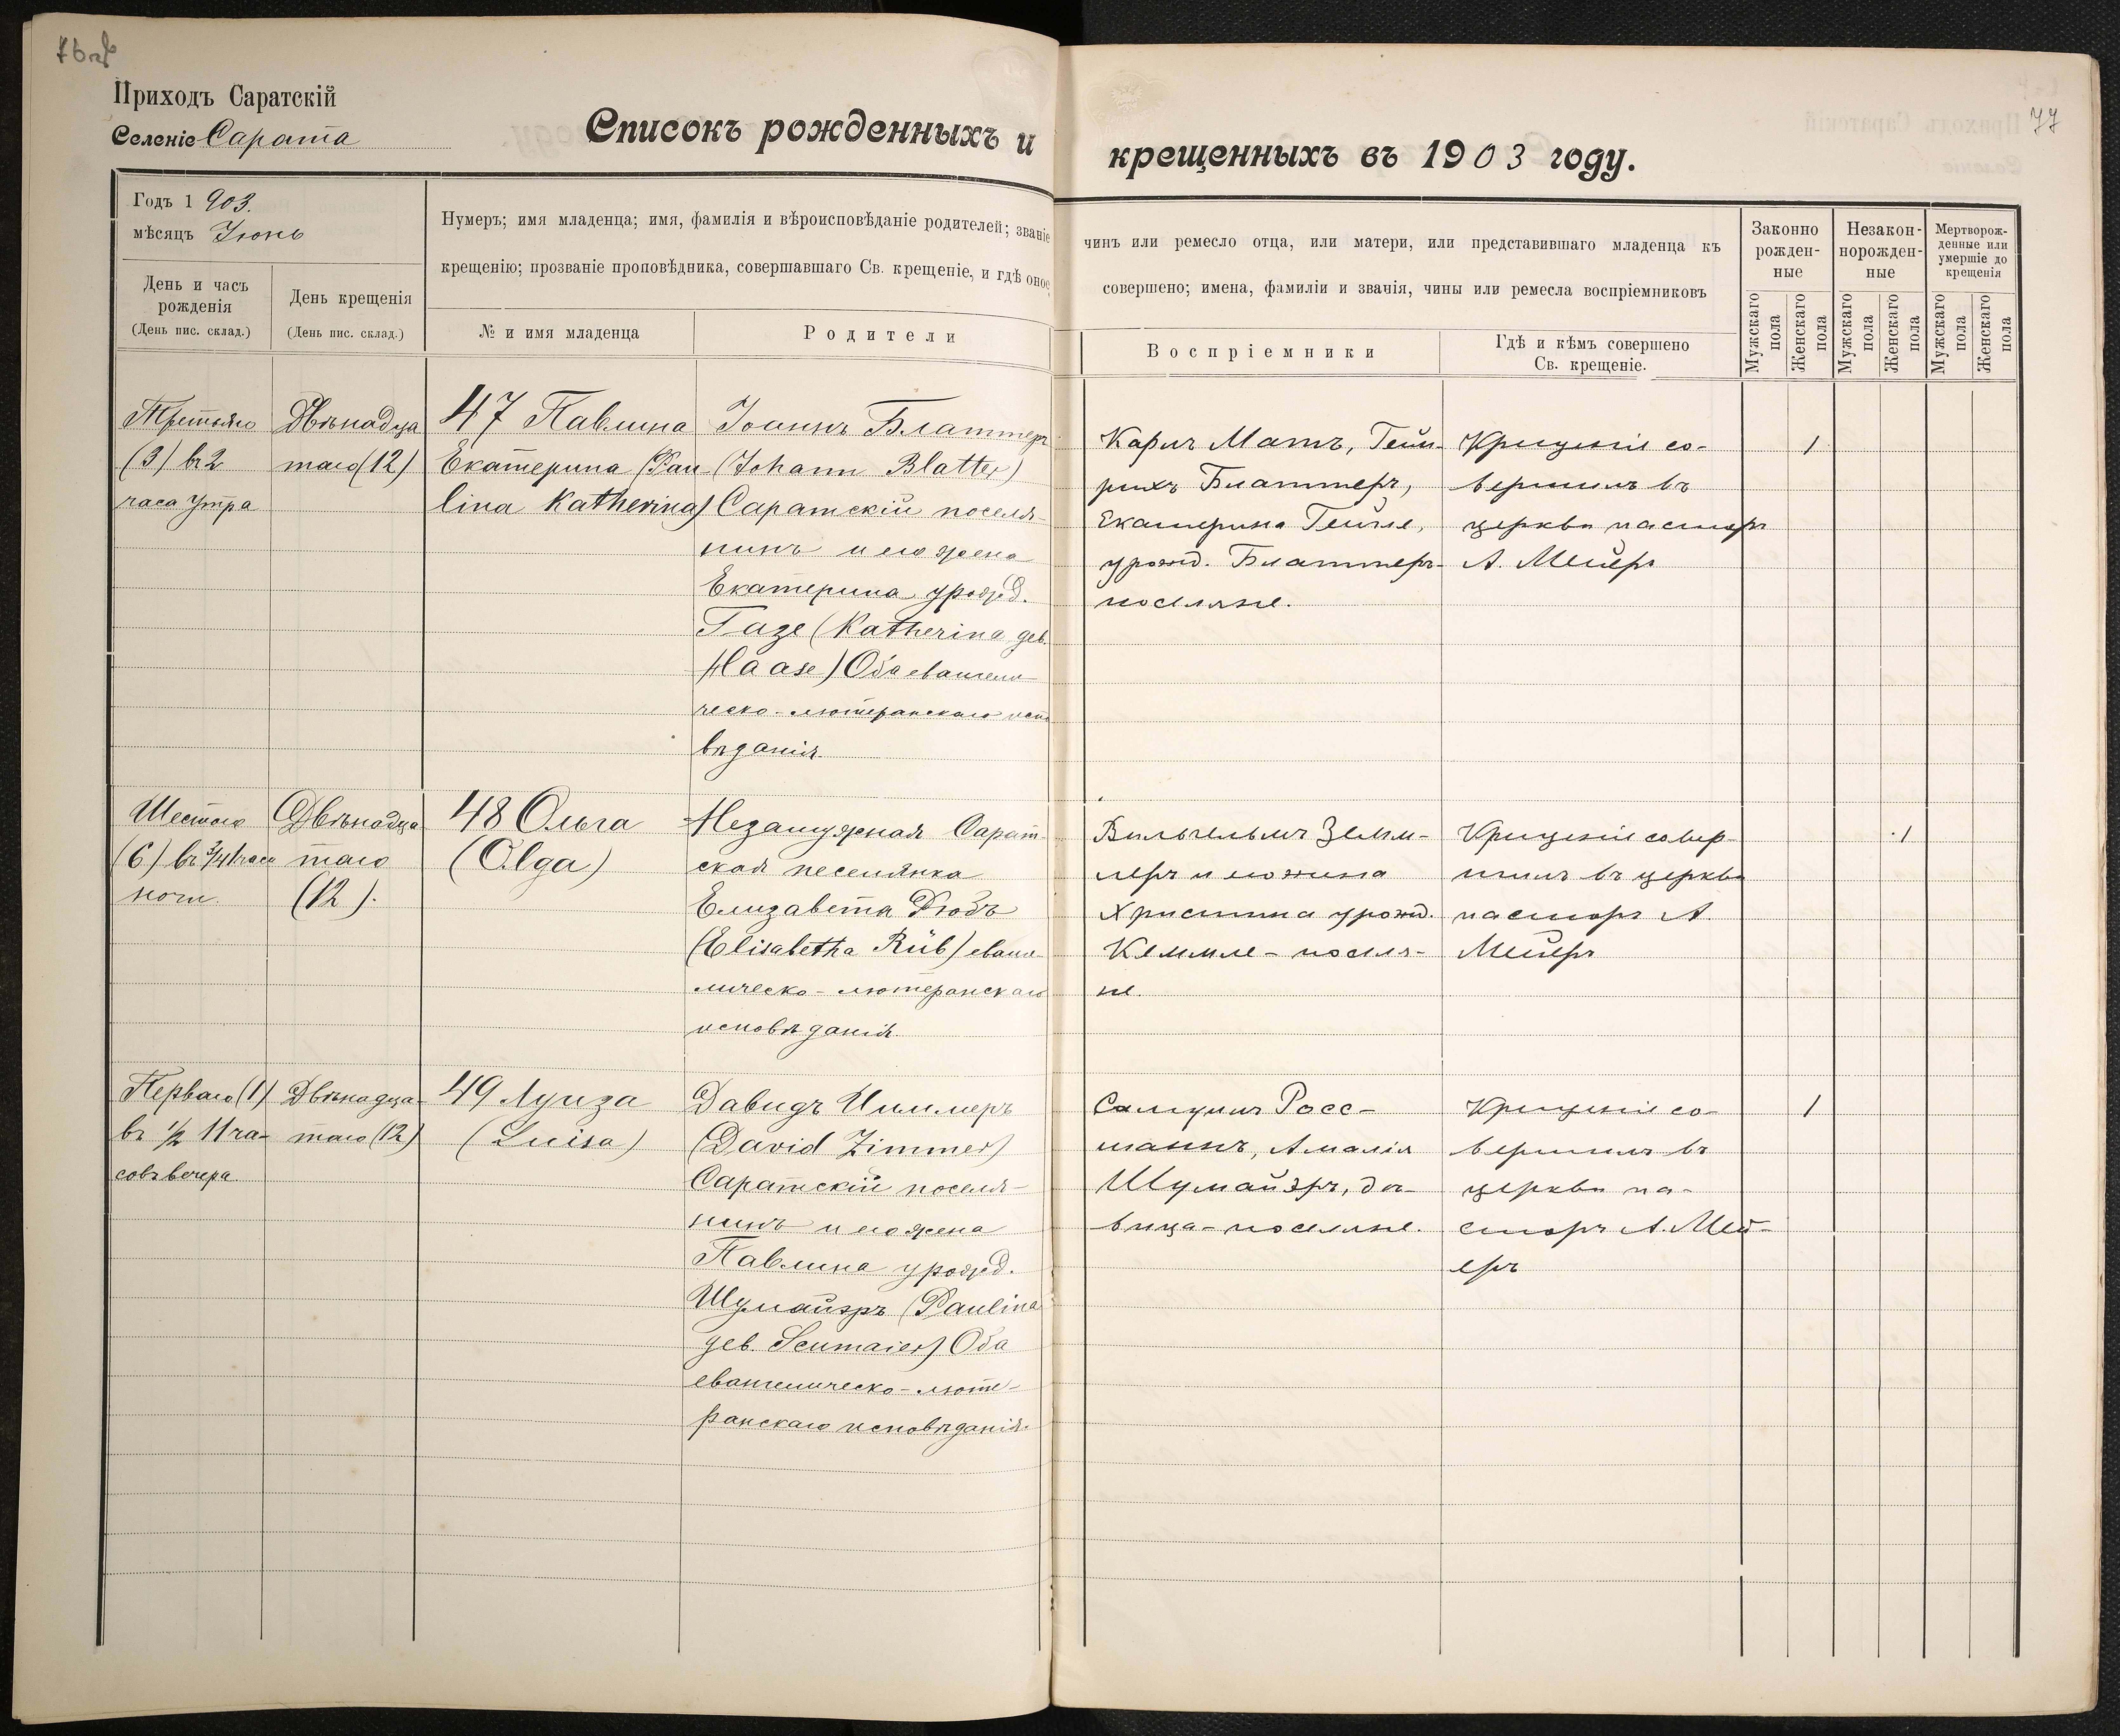 Приходъ Саратскій
Селеніе Сарата
Списокъ рожденныхъ и крещенныхъ въ 1903 году.
77
Годъ 1903.
мѣсяцъ Іюнь
Нумеръ; имя младенца; имя, фамилія и вѣроисповѣданіе родителей; званіе
чинъ или ремесло отца, или матери, или представившаго младенца къ
крещенію; прозваніе проповѣдника, совершавшаго Св. крещеніе, и гдѣ оное
совершено; имена, фамиліи и званія, чины или ремесла воспріемниковъ
День и часъ
рожденія
(День пис. склад.)
День крещенія
(День пис. склад.)
№ и имя младенца
Родители
Воспріемники
Гдѣ и кѣмъ совершено
Св. крещеніе.
Законно
рожден-
ные
Незакон-
норожден-
ные
Мертворож-
денные или
умершіе до
крещенія
Мужскаго пола
Женскаго пола
Мужскаго пола
Женскаго пола
Мужскаго пола
Женскаго пола
Третьяго
(3) въ 2
часа утра
Двѣнадца
таго (12)
47 Павлина
Екатерина (Pau
lina Katherina)
Іоаннъ Блаттеръ
(Johann Blatter)
Саратскій поселя-
нинъ и его жена
Екатерина урожд.
Газе (Katherina geb.
Haase) Оба евангели
ческо-лютеранскаго испо
вѣданія.
Карлъ Матъ, Гейн-
рихъ Блаттеръ,
Екатерина Гейне,
урожд. Блаттеръ-
поселяне.
Крещеніе со-
вершилъ въ
церкви пасторъ
А. Мейеръ
1
Шестого
(6) въ 3/4 1 часа
ночи.
Двѣнадца
таго
(12).
48 Ольга
(Olga)
Незамужная Сарат-
ская поселянка
Елизавета Рюбъ
(Elisabetha Rüb) еванге-
лическо-лютеранскаго
исповѣданія.
Вильгельмъ Зейм-
леръ и его жена
Христина урожд.
Кеммле - поселя-
не.
Крещеніе совер-
шилъ въ церкви
пасторъ А.
Мейеръ
1
Перваго (1)
въ 1/2 11 ча-
совъ вечера
Двѣнадца-
таго (12)
49 Луиза
(Luisa)
Давидъ Циммеръ
(David Zimmer)
Саратскій поселя-
нинъ и его жена
Павлина урожд.
Шумайэръ (Paulina
geb. Scumaier) Оба
евангелическо-люте-
ранскаго исповѣданія.
Самуилъ Росс-
маннъ, Амалія
Шумайэръ, дѣ-
вица - поселяне.
Крещеніе со-
вершилъ въ
церкви па-
сторъ А. Мей-
еръ
1